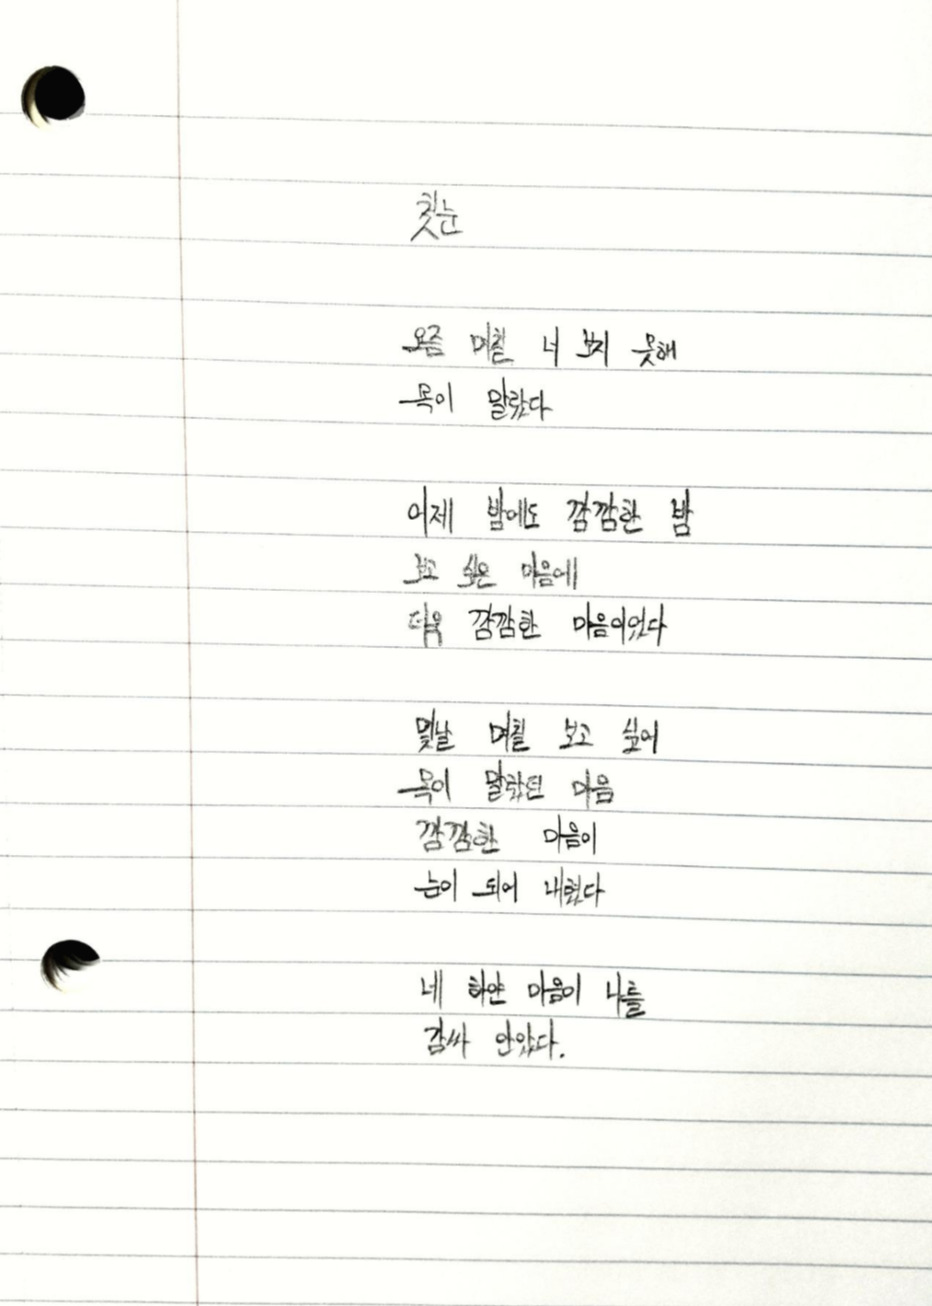 첫눈
요즘 며칠 너 보지 못해
목이 말랐다
어제 밤에도 깜깜한 밤
보고 싶은 마음에
더욱 깜깜한 마음이었다
몇날 며칠 보고 싶어
목이 말랐던 마음
깜깜한 마음이
눈이 되어 내렸다
네 하얀 마음이 나를
감싸 안았다.